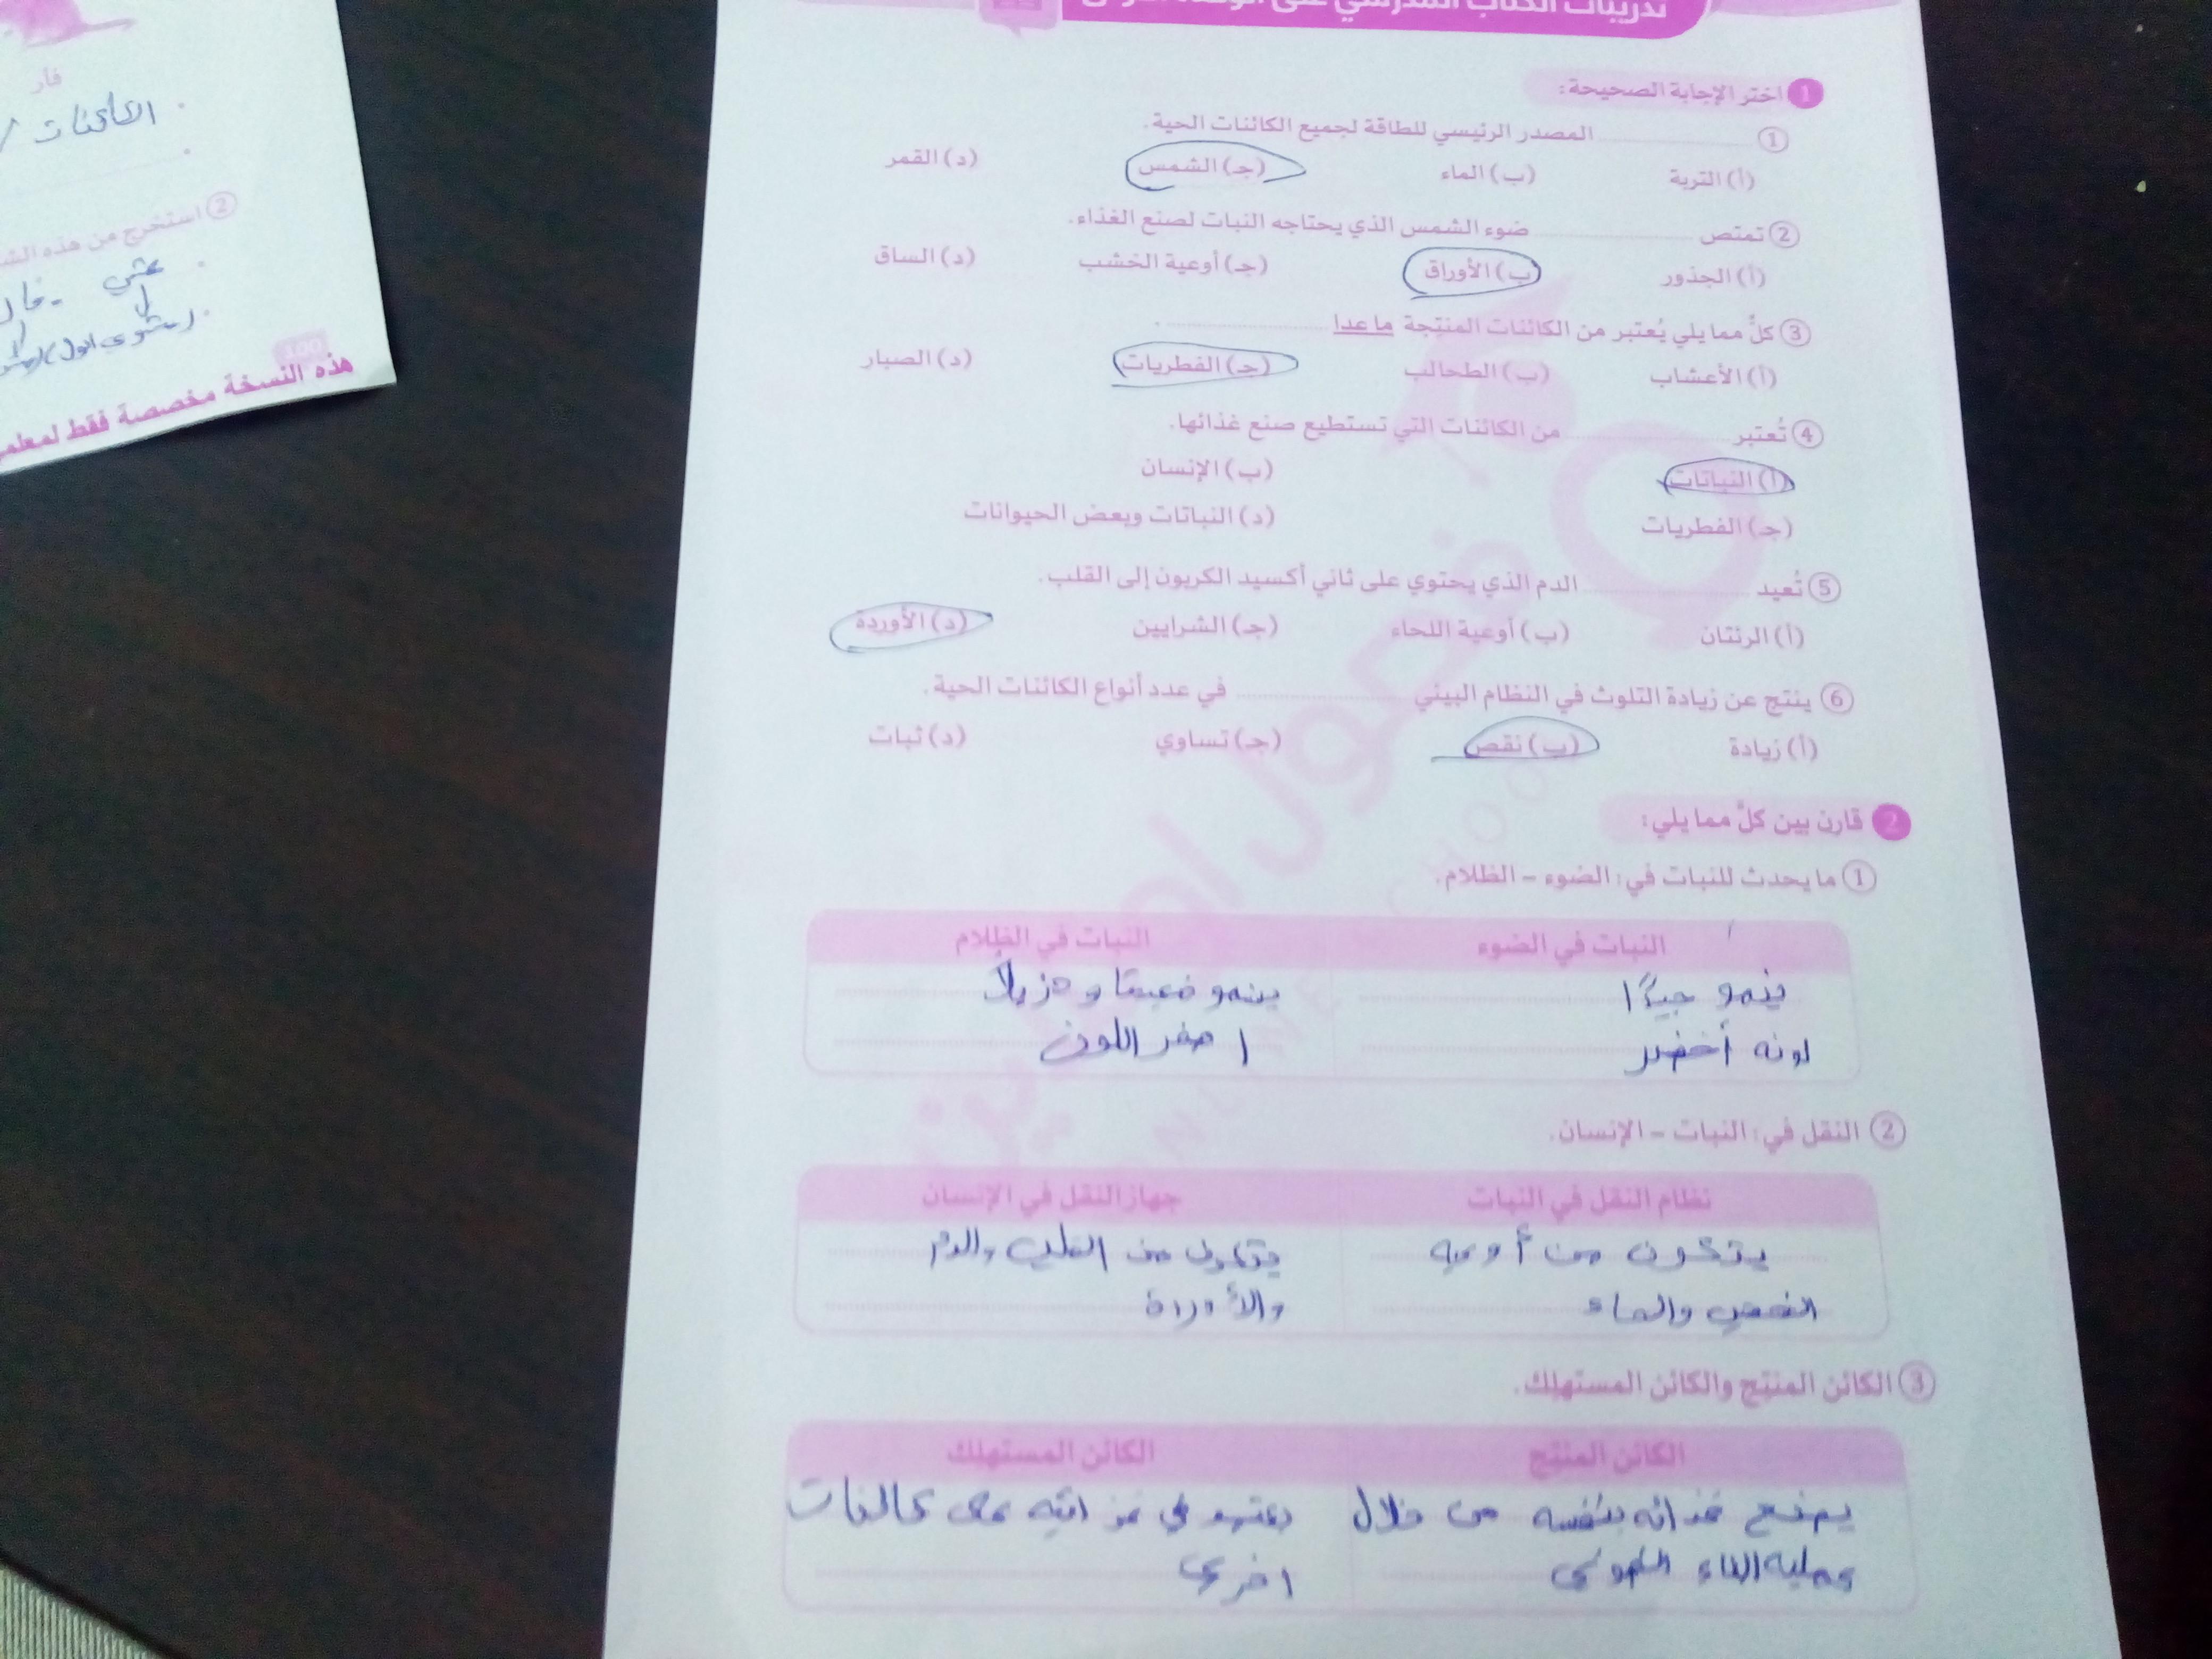 تدريبات الكتاب المدرسي على
1 اختر الإجابة الصحيحة:
① المصدر الرئيسي للطاقة لجميع الكائنات الحية.
(أ) التربة (ب) الماء (جـ) الشمس (د) القمر
② تمتص ضوء الشمس الذي يحتاجه النبات لصنع الغذاء.
(أ) الجذور (ب) الأوراق (جـ) أوعية الخشب (د) الساق
③ كلٌّ مما يلي يُعتبر من الكائنات المنتِجة ما عدا .
(أ) الأعشاب (ب) الطحالب (جـ) الفطريات (د) الصبار
④ تُعتبر من الكائنات التي تستطيع صنع غذائها.
(أ) النباتات (ب) الإنسان
(جـ) الفطريات (د) النباتات وبعض الحيوانات
⑤ تُعيد الدم الذي يحتوي على ثاني أكسيد الكربون إلى القلب.
(أ) الرئتان (ب) أوعية اللحاء (جـ) الشرايين (د) الأوردة
⑥ ينتج عن زيادة التلوث في النظام البيئي في عدد أنواع الكائنات الحية.
(أ) زيادة (ب) نقص (جـ) تساوي (د) ثبات
2 قارن بين كلٍّ مما يلي:
① ما يحدث للنبات في: الضوء – الظلام.
النبات في الضوء النبات في الظلام
ينمو جيدًا ينمو ضعيفا و هزيلاً
لونه أخضر اصفر اللون
② النقل في: النبات – الإنسان.
نظام النقل في النبات جهاز النقل في الإنسان
يتكون من أوعيه يتكون من القلب والدم
والماء والأوردة
③ الكائن المنتِج والكائن المستهلِك.
الكائن المنتِج الكائن المستهلِك
يصنع غذائه بنفسه من خلال يعتمد في غذائيه على كائنات
عمليه البناء الضوئي اخرى
فأر
الكائنات
② استخرج من هذه
100
هذه النسخة مخصصة فقط